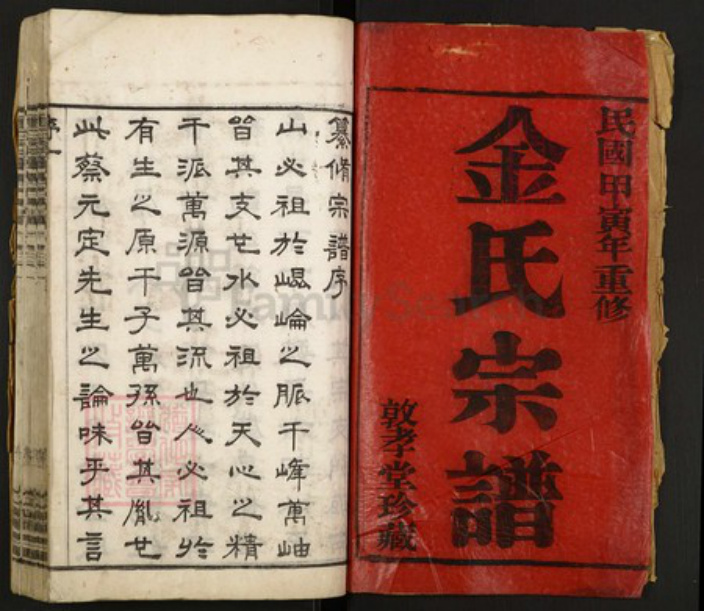 民國甲寅年重修
金氏宗譜
敦孝堂珍藏
纂脩宗譜序
山必祖於崐崙之脈千峰萬岫
皆其支也水必祖於天心之精
千派萬源皆其流也人必祖於
有生之原千子萬孫皆其胤也
此蔡元定先生之論味乎其言
序一
FamilySearch